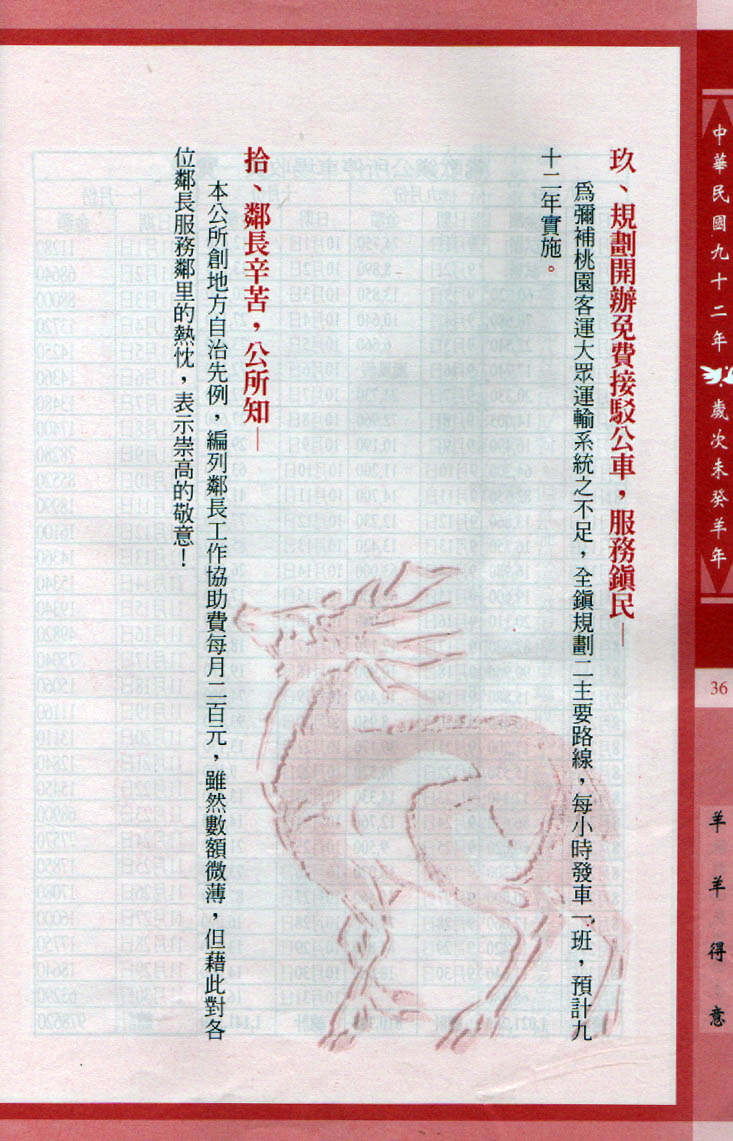 中華民國九十二年
歲次未癸羊年
36
羊羊得意
玖、規劃開辦免費接駁公車，服務鎮民—
為彌補桃園客運大眾運輸系統之不足，全鎮規劃二主要路線，每小時發車一班，預計九
十二年實施。
拾、鄰長辛苦，公所知—
本公所創地方自治先例，編列鄰長工作協助費每月二百元，雖然數額微薄，但藉此對各
位鄰長服務鄰里的熱忱，表示崇高的敬意！